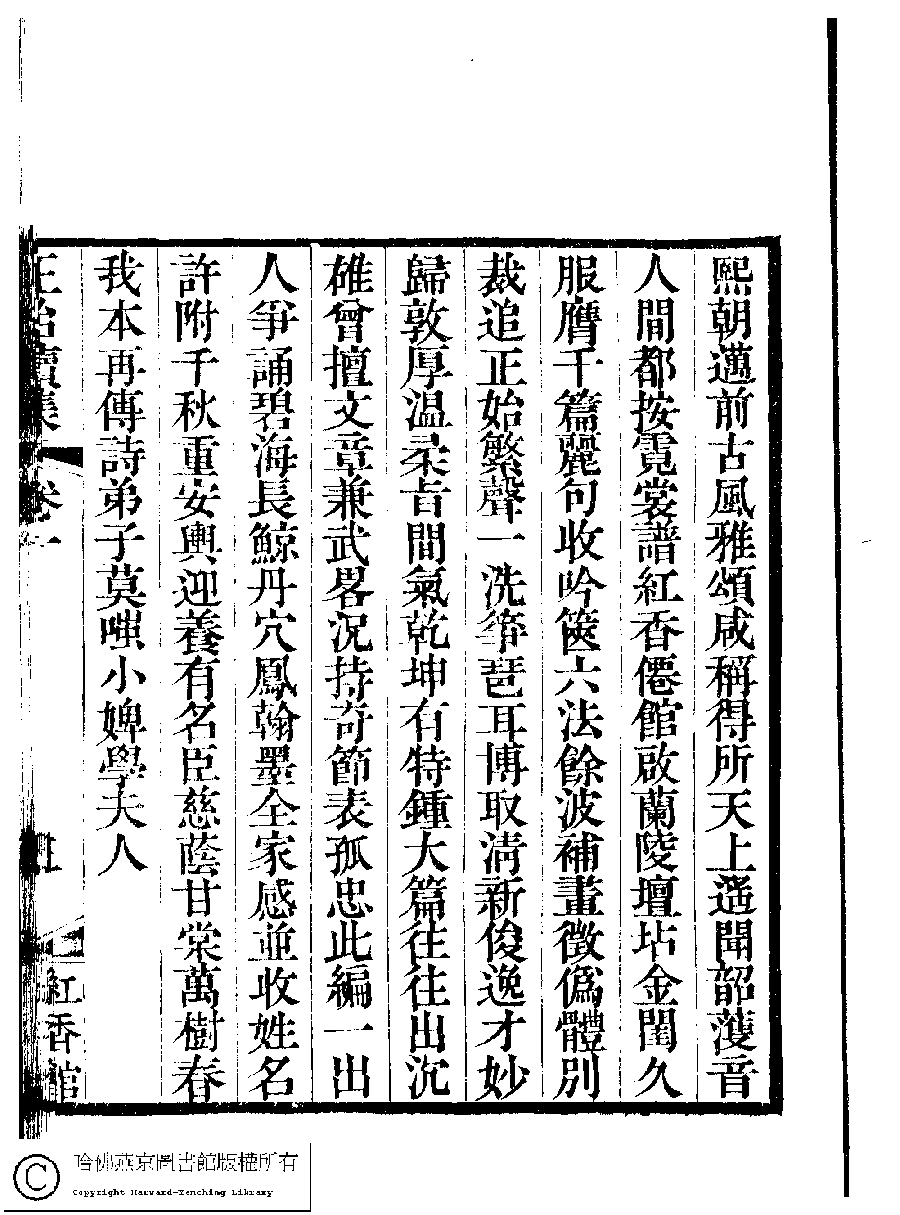 熙朝邁前古風雅頌咸稱得所天上遥聞韶頀音
人間都按霓裳譜紅香僊館啟蘭陵壇坫金閨久
服膺千篇麗句收吟篋六法餘波補畫徵僞體別
裁追正始繁聲一洗箏琶耳博取淸新俊逸才妙
歸敦厚温柔旨間氣乾坤有特鍾大篇往往出沉
雄曾擅文章兼武畧況持奇節表孤忠此編一出
人爭誦碧海長鯨丹穴鳳翰墨全家感並收姓名
許附千秋重安輿迎養有名臣慈蔭甘棠萬樹春
我本再傳詩弟子莫嗤小婢學夫人
正始續集 卷一 紅香館
哈佛燕京圖書館版權所有
Copyright Harvard-Yenching Library